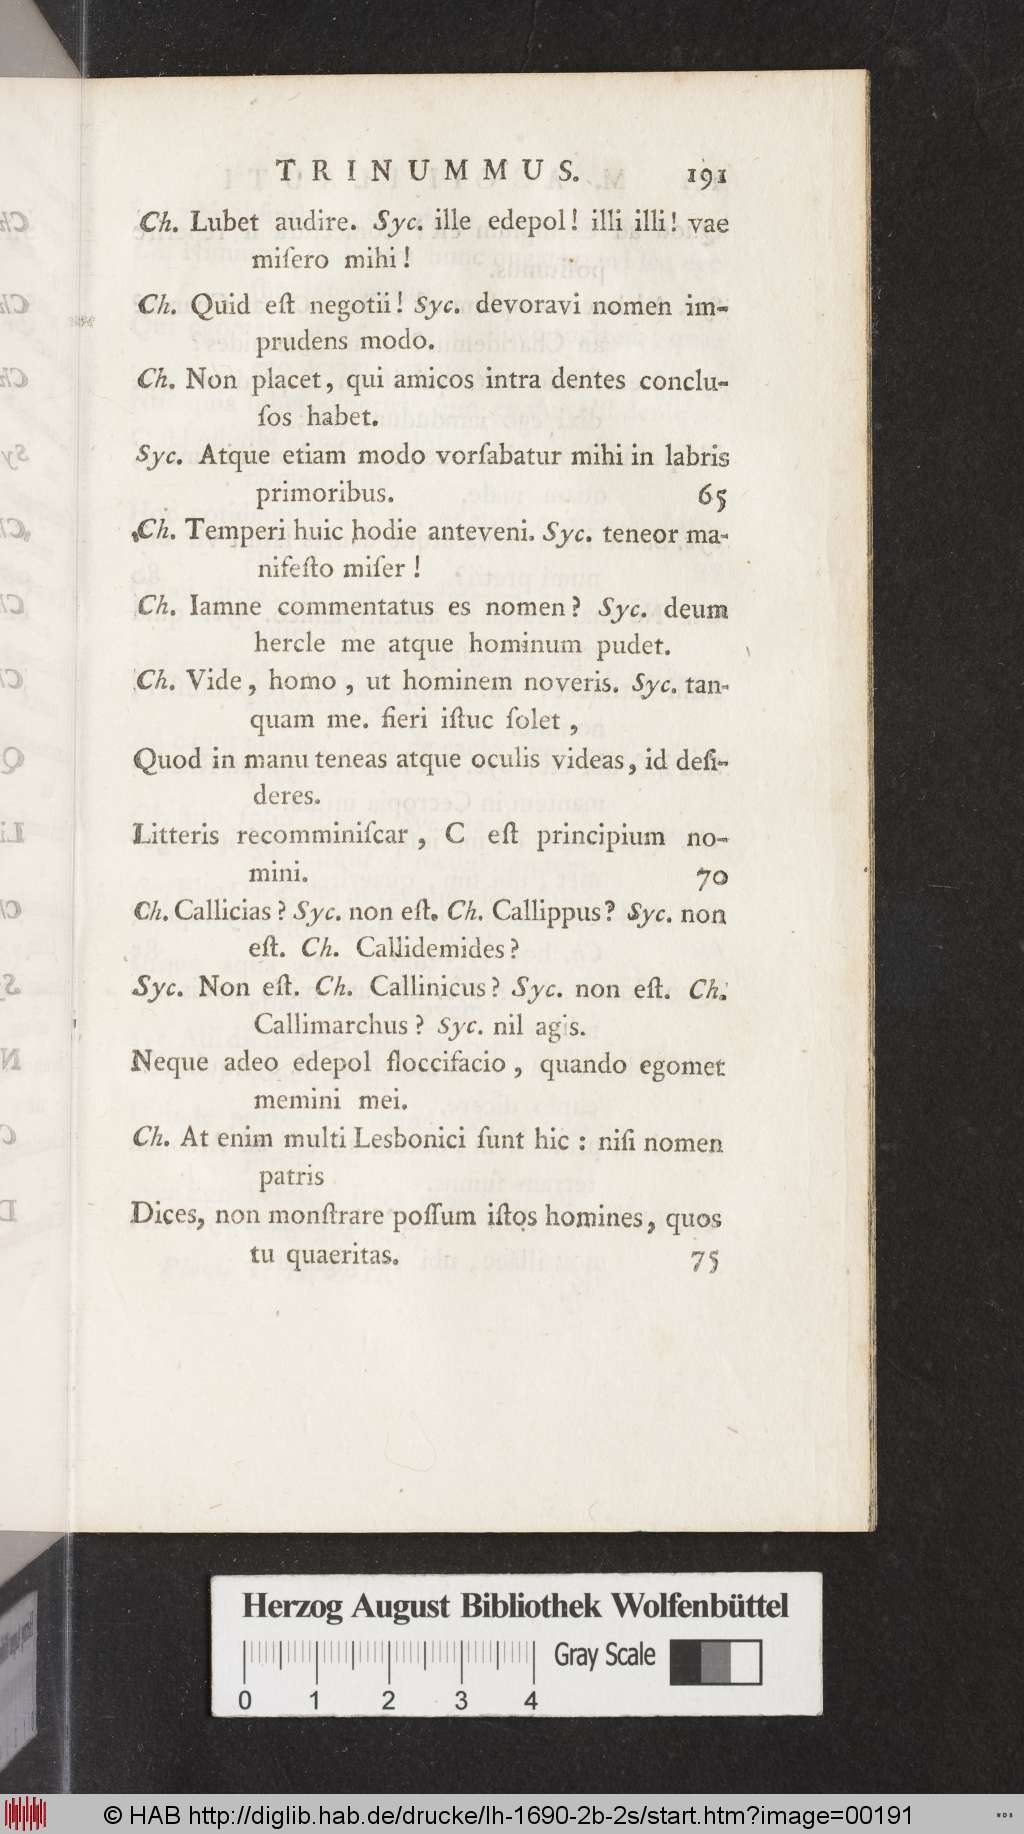 TRINUMMUS. 191
Ch. Lubet audire. Syc. ille edepol! illi illi! vae
miſero mihi!
Ch. Quid eſt negotii! Syc. devoravi nomen im-
prudens modo.
Ch. Non placet, qui amicos intra dentes conclu-
ſos habet.
Syc. Atque etiam modo vorſabatur mihi in labris
primoribus. 65
Ch. Temperi huic hodie anteveni. Syc. teneor ma-
nifeſto miſer!
Ch. Iamne commentatus es nomen? Syc. deum
hercle me atque hominum pudet.
Ch. Vide, homo, ut hominem noveris. Syc. tan-
quam me. fieri iſtuc ſolet,
Quod in manu teneas atque oculis videas, id deſi-
deres.
Litteris recomminiſcar, C eſt principium no-
mini. 70
Ch. Callicias? Syc. non eſt. Ch. Callippus? Syc. non
eſt. Ch. Callidemides?
Syc. Non eſt. Ch. Callinicus? Syc. non eſt. Ch.
Callimarchus? Syc. nil agis.
Neque adeo edepol floccifacio, quando egomet
memini mei.
Ch. At enim multi Lesbonici ſunt hic: niſi nomen
patris
Dices, non monſtrare poſſum iſtos homines, quos
tu quaeritas. 75
Herzog August Bibliothek Wolfenbüttel
Gray Scale
0 1 2 3 4
© HAB http://diglib.hab.de/drucke/lh-1690-2b-2s/start.htm?image=00191